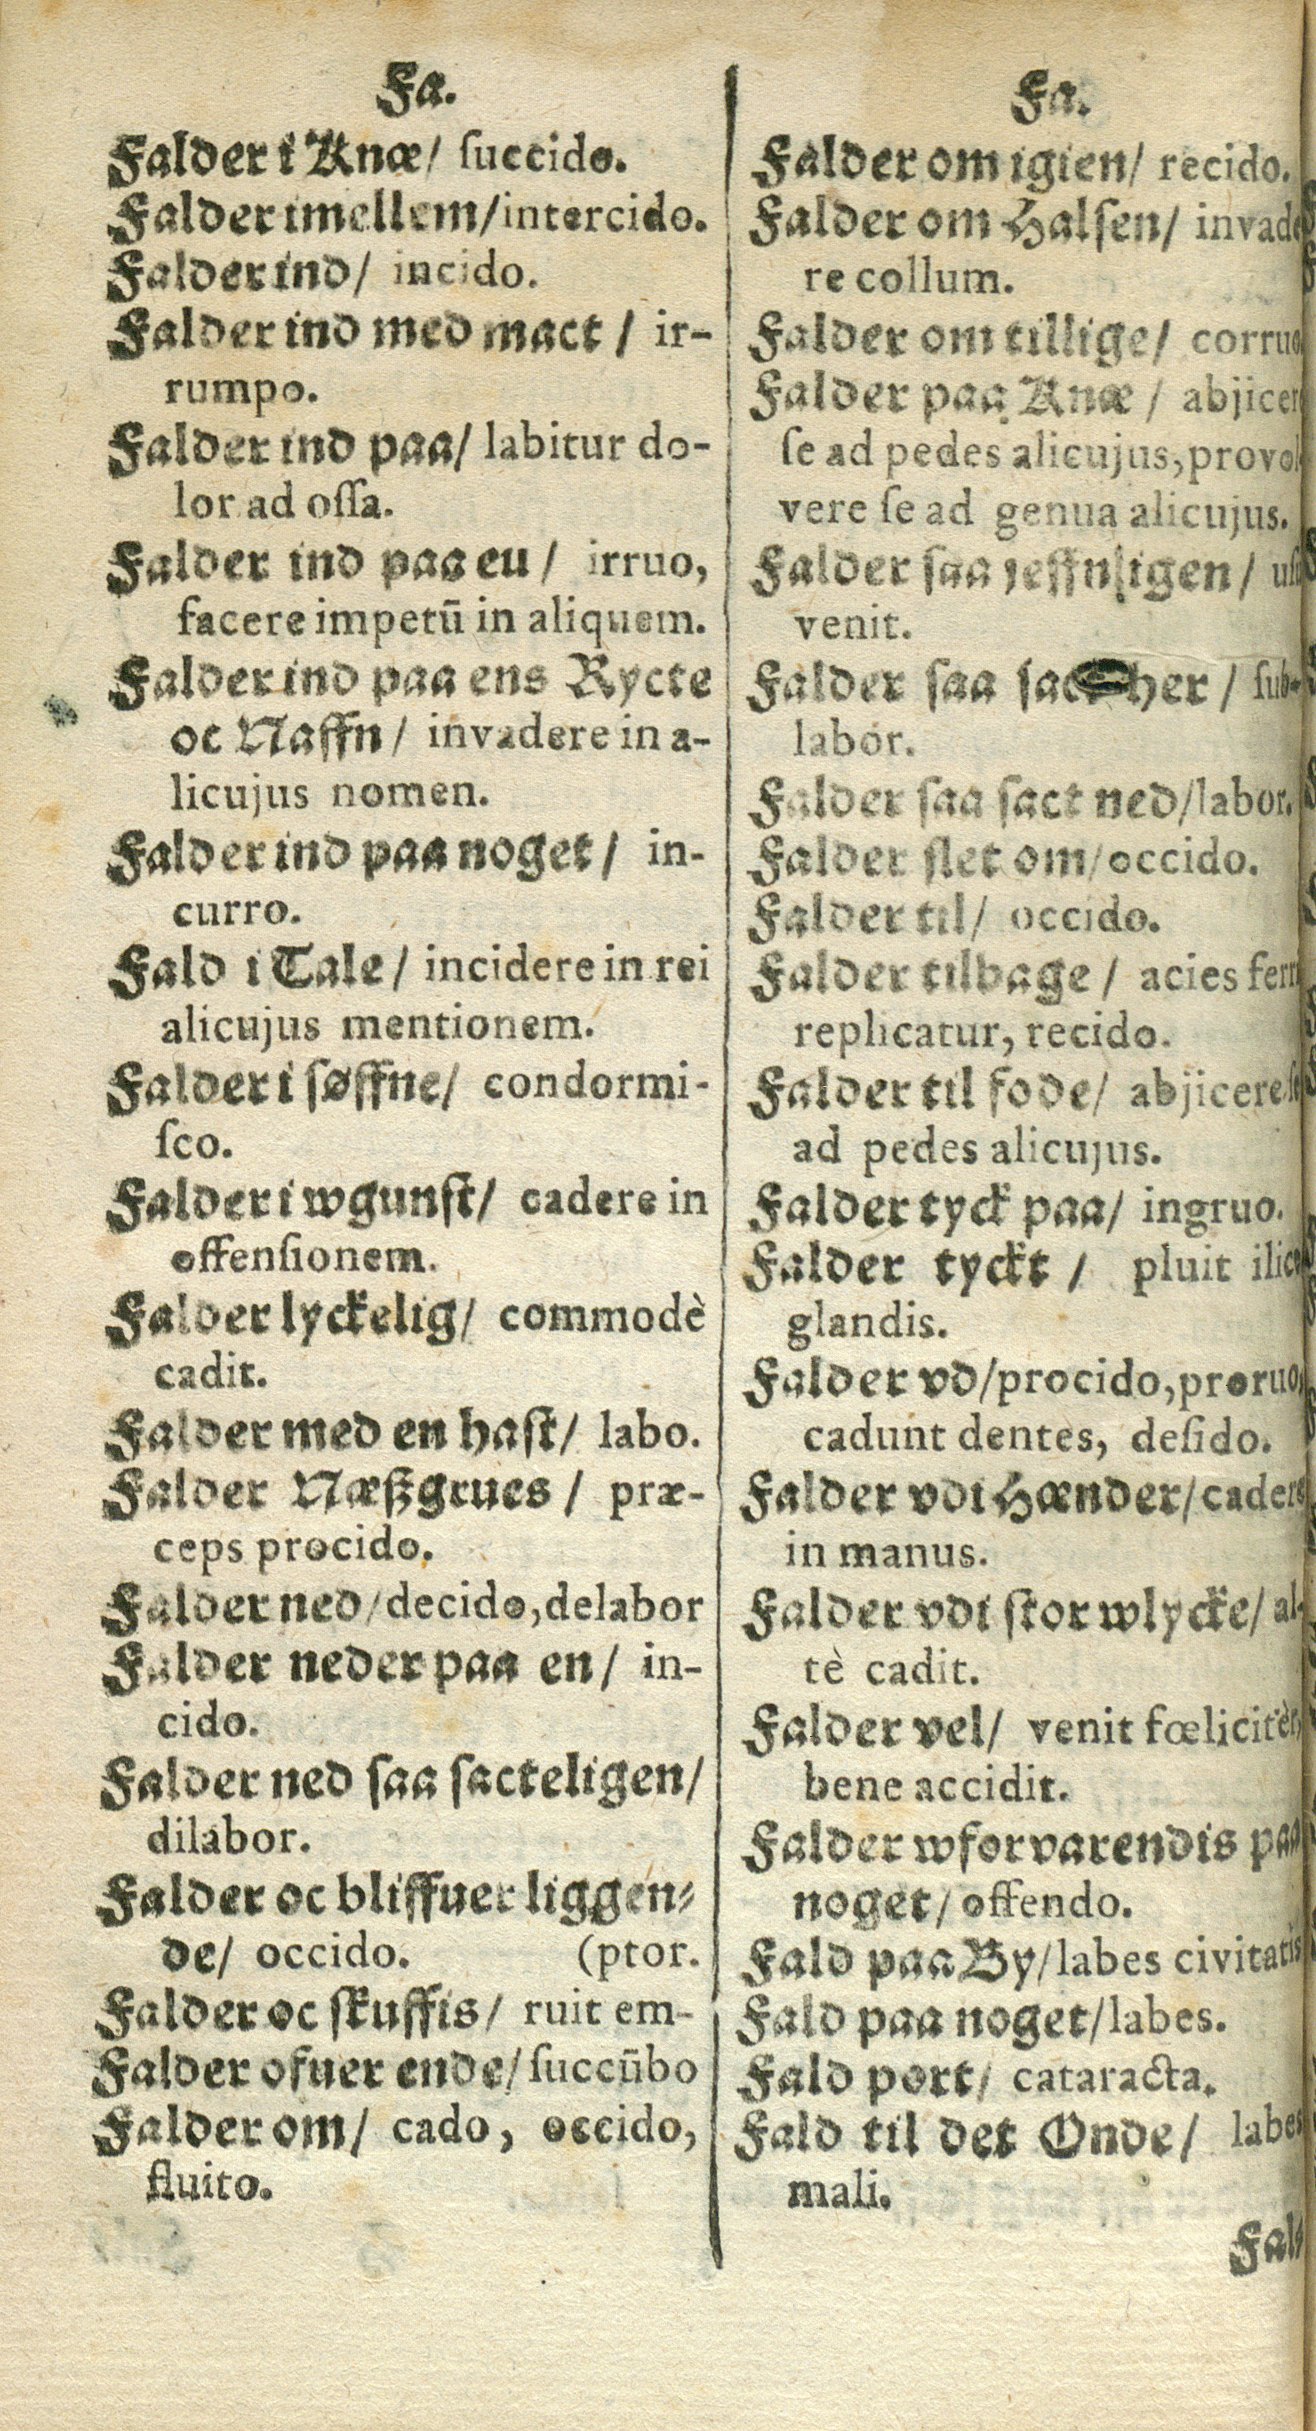 Fa.
Falder i Knæ/ ſuccido.
Falder imellem/ intercido.
Falder ind/ incido.
Falder ind med mact / ir-
rumpo.
Falder ind paa/ labitur do-
lor ad oſſa.
Falder ind paa eu / irruo,
facere impetū in aliquem.
Falder ind paa ens Rycte
oc Naffn / invadere in a-
licujus nomen.
Falder ind paa noget / in-
curro.
Fald i Tale / incidere in rei
alicujus mentionem.
Falder i ſøffne/ condormi-
ſco.
Falder i wgunſt/ cadere in
offenſionem.
Falder lyckelig/ commodè
cadit.
Falder med en haſt/ labo.
Falder Næßgrues / præ-
ceps procido.
Falder ned/ decido, delabor
Falder neder paa en/ in-
cido.
Falder ned ſaa ſacteligen/
dilabor.
Falder oc bliffuer liggen-
de/ occido. (ptor.
Falder oc ſkuffis/ ruit em-
Falder ofuer ende/ ſuccūbo
Falder om/ cado, occido,
fluito.
Fa.
Falder om igien/ recido.
Falder om Halſen/ invade
re collum.
Falder om tillige/ corruo
Falder paa Knæ / abjicer
ſe ad pedes alicujus, provol
vere ſe ad genua alicujus.
Falder ſaa jeffnligen/ uſu
venit.
Falder ſaa her / ſub-
labor.
Falder ſaa ſact ned/ labor.
Falder ſlet om/ occido.
Falder til/ occido.
Falder tilbage / acies ferri
replicatur, recido.
Falder til fode/ abjicere ſe
ad pedes alicujus.
Falder tyck paa/ ingruo.
Falder tyckt / pluit ilice
glandis.
Falder vd/ procido, proruo,
cadunt dentes, deſido.
Falder vdi Hænder/ cadere
in manus.
Falder vdi ſtor wlycke/ al-
tè cadit.
Falder vel/ venit fœlicitèr,
bene accidit.
Falder wforvarendis paa
noget/ offendo.
Fald paa By/ labes civitatis
Fald paa noget/ labes.
Fald port/ cataracta.
Fald til det Onde/ labes
mali.
Fald